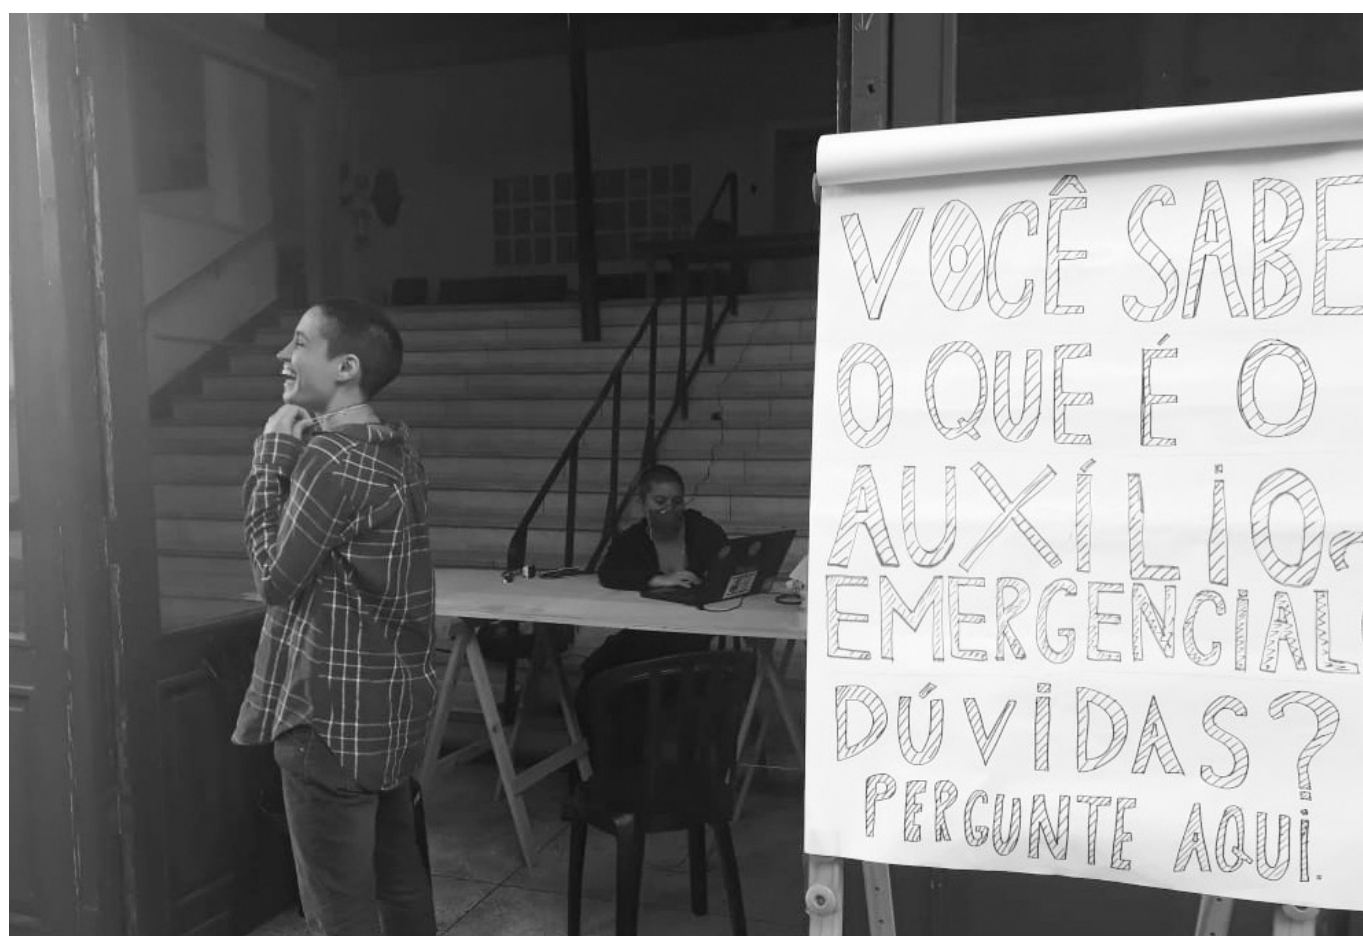 VOCÊ SABE
O QUE É O
AUXÍLIO-
EMERGENCIAL
DÚVIDAS?
PERGUNTE AQUI.